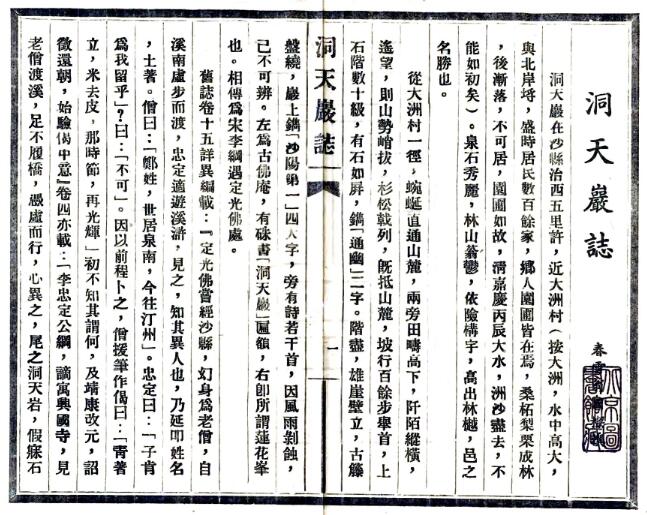 洞天巖誌
洞天巖在沙縣治西五里許，近大洲村（按大洲，水中高大，
與北岸埒，盛時居民數百餘家，鄉人園圃皆在焉，桑柘梨栗成林
，後漸落，不可居，園圃如故，清嘉慶丙辰大水，洲沙盡去，不
能如初矣）。泉石秀麗，林山蓊鬱，依險構字，高出林樾，邑之
名勝也。
從大洲村一徑，蜿蜒直通山麓，兩旁田疇高下，阡陌縱橫，
遙望，則山勢峭拔，杉松戟列，旣抵山麓，坡行百餘步舉首，上
石階數十級，有石如屏，鐫「通幽」二字。階盡，雄崖壁立，古籐
洞天巖誌
一
盤繞，巖上鐫「沙陽第一」四大字，旁有詩若干首，因風雨剝蝕，
已不可辨。左爲古佛庵，有硃書「洞天巖」匾額，右卽所謂蓮花峯
也。相傳爲宋李綱遇定光佛處。
舊誌卷十五詳異編載：『定光佛嘗經沙縣，幻身爲老僧，自
溪南虛步而渡，忠定適遊溪滸，見之，知其異人也，乃延叩姓名
，土著。僧曰：「鄭姓，世居泉南，今往汀州」。忠定曰：「子肯
爲我留乎」？曰：「不可」。因以前程卜之，僧援筆作偈曰：「靑著
立，米去皮，那時節，再光輝」初不知其謂何，及靖康改元，詔
徵還朝，始驗偈中意』卷四亦載：「李忠定公綱，謫寓興國寺，見
老僧渡溪，足不履橋，憑虛而行，心異之，尾之洞天岩，假寐石